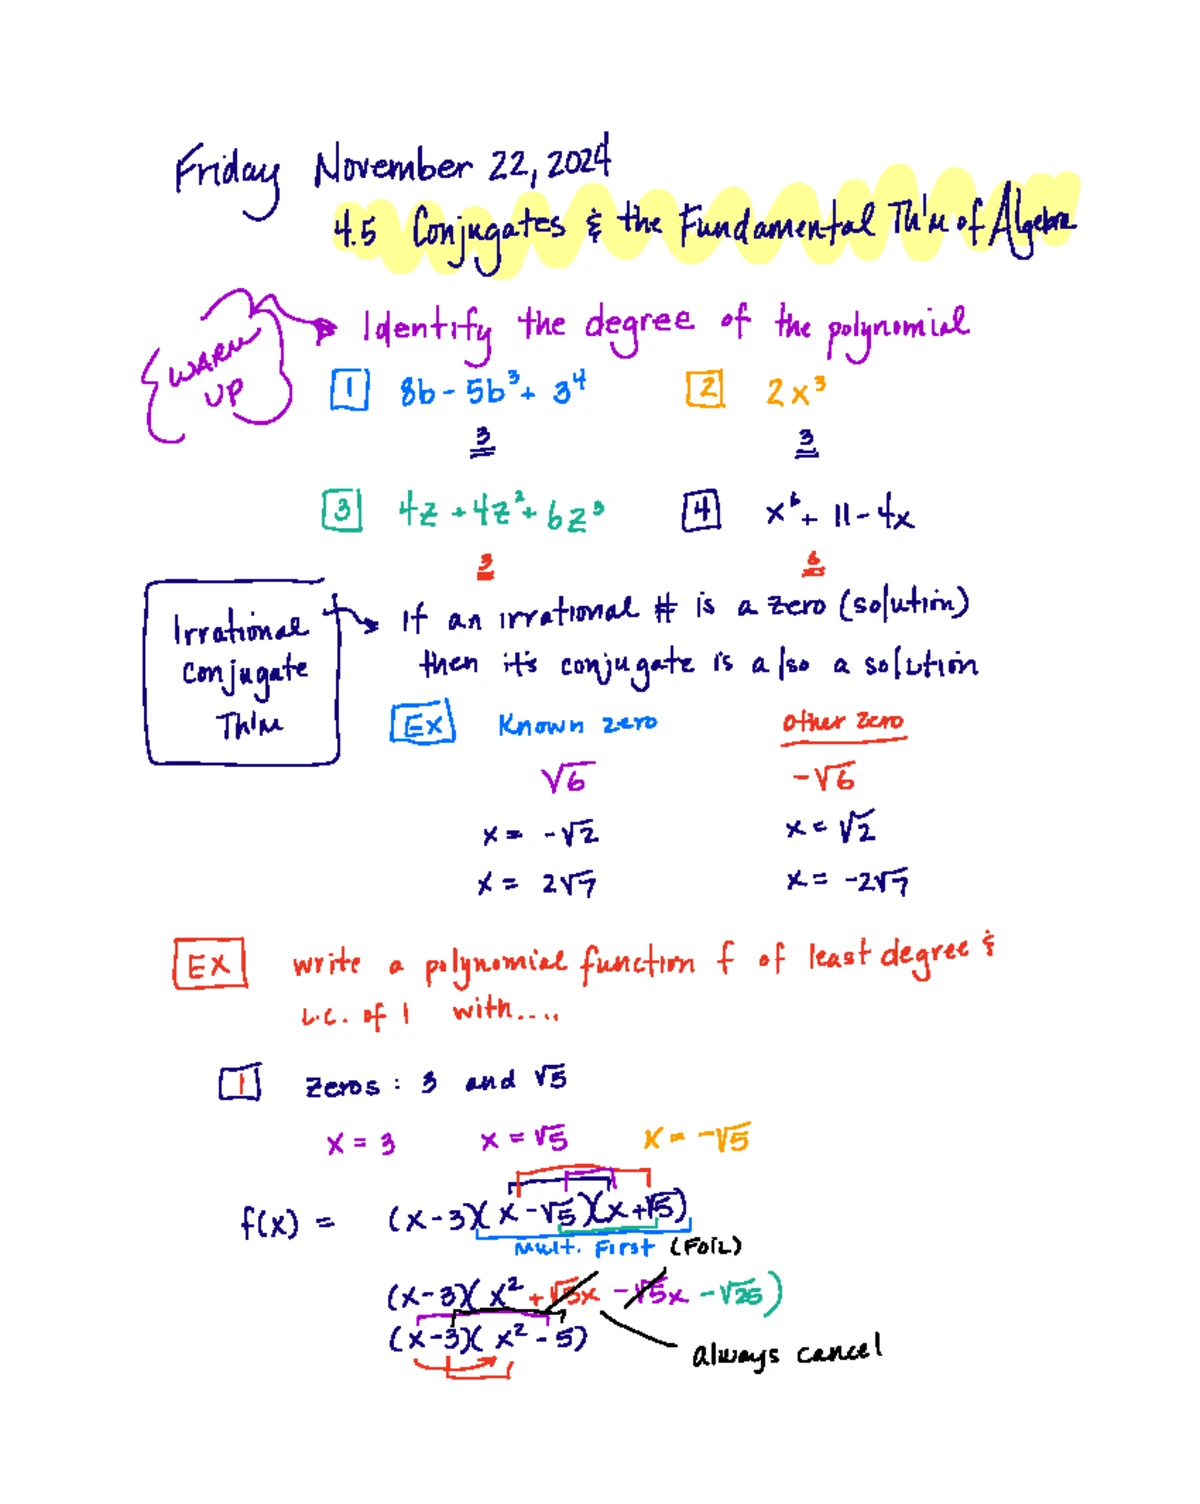 Friday November 22, 2024
4.5 Conjugates & the Fundamental Th'm of Algebra
WARM UP
Identify the degree of the polynomial
1 8b - 5b³ + 3⁴
2 2x³
3
3
3 4z + 4z² + 6z³
4 x⁶ + 11 - 4x
3
6
Irrational Conjugate Th'm
If an irrational # is a zero (solution)
then it's conjugate is also a solution
Ex Known zero Other zero
√6 -√6
x = -√2 x = √2
x = 2√7 x = -2√7
EX write a polynomial function f of least degree &
L.C. of 1 with....
1 zeros: 3 and √5
x = 3 x = √5 x = -√5
f(x) = (x-3)(x-√5)(x+√5)
Mult. First (FOIL)
(x-3)(x² + √5x - √5x - √25)
(x-3)(x² - 5)
always cancel